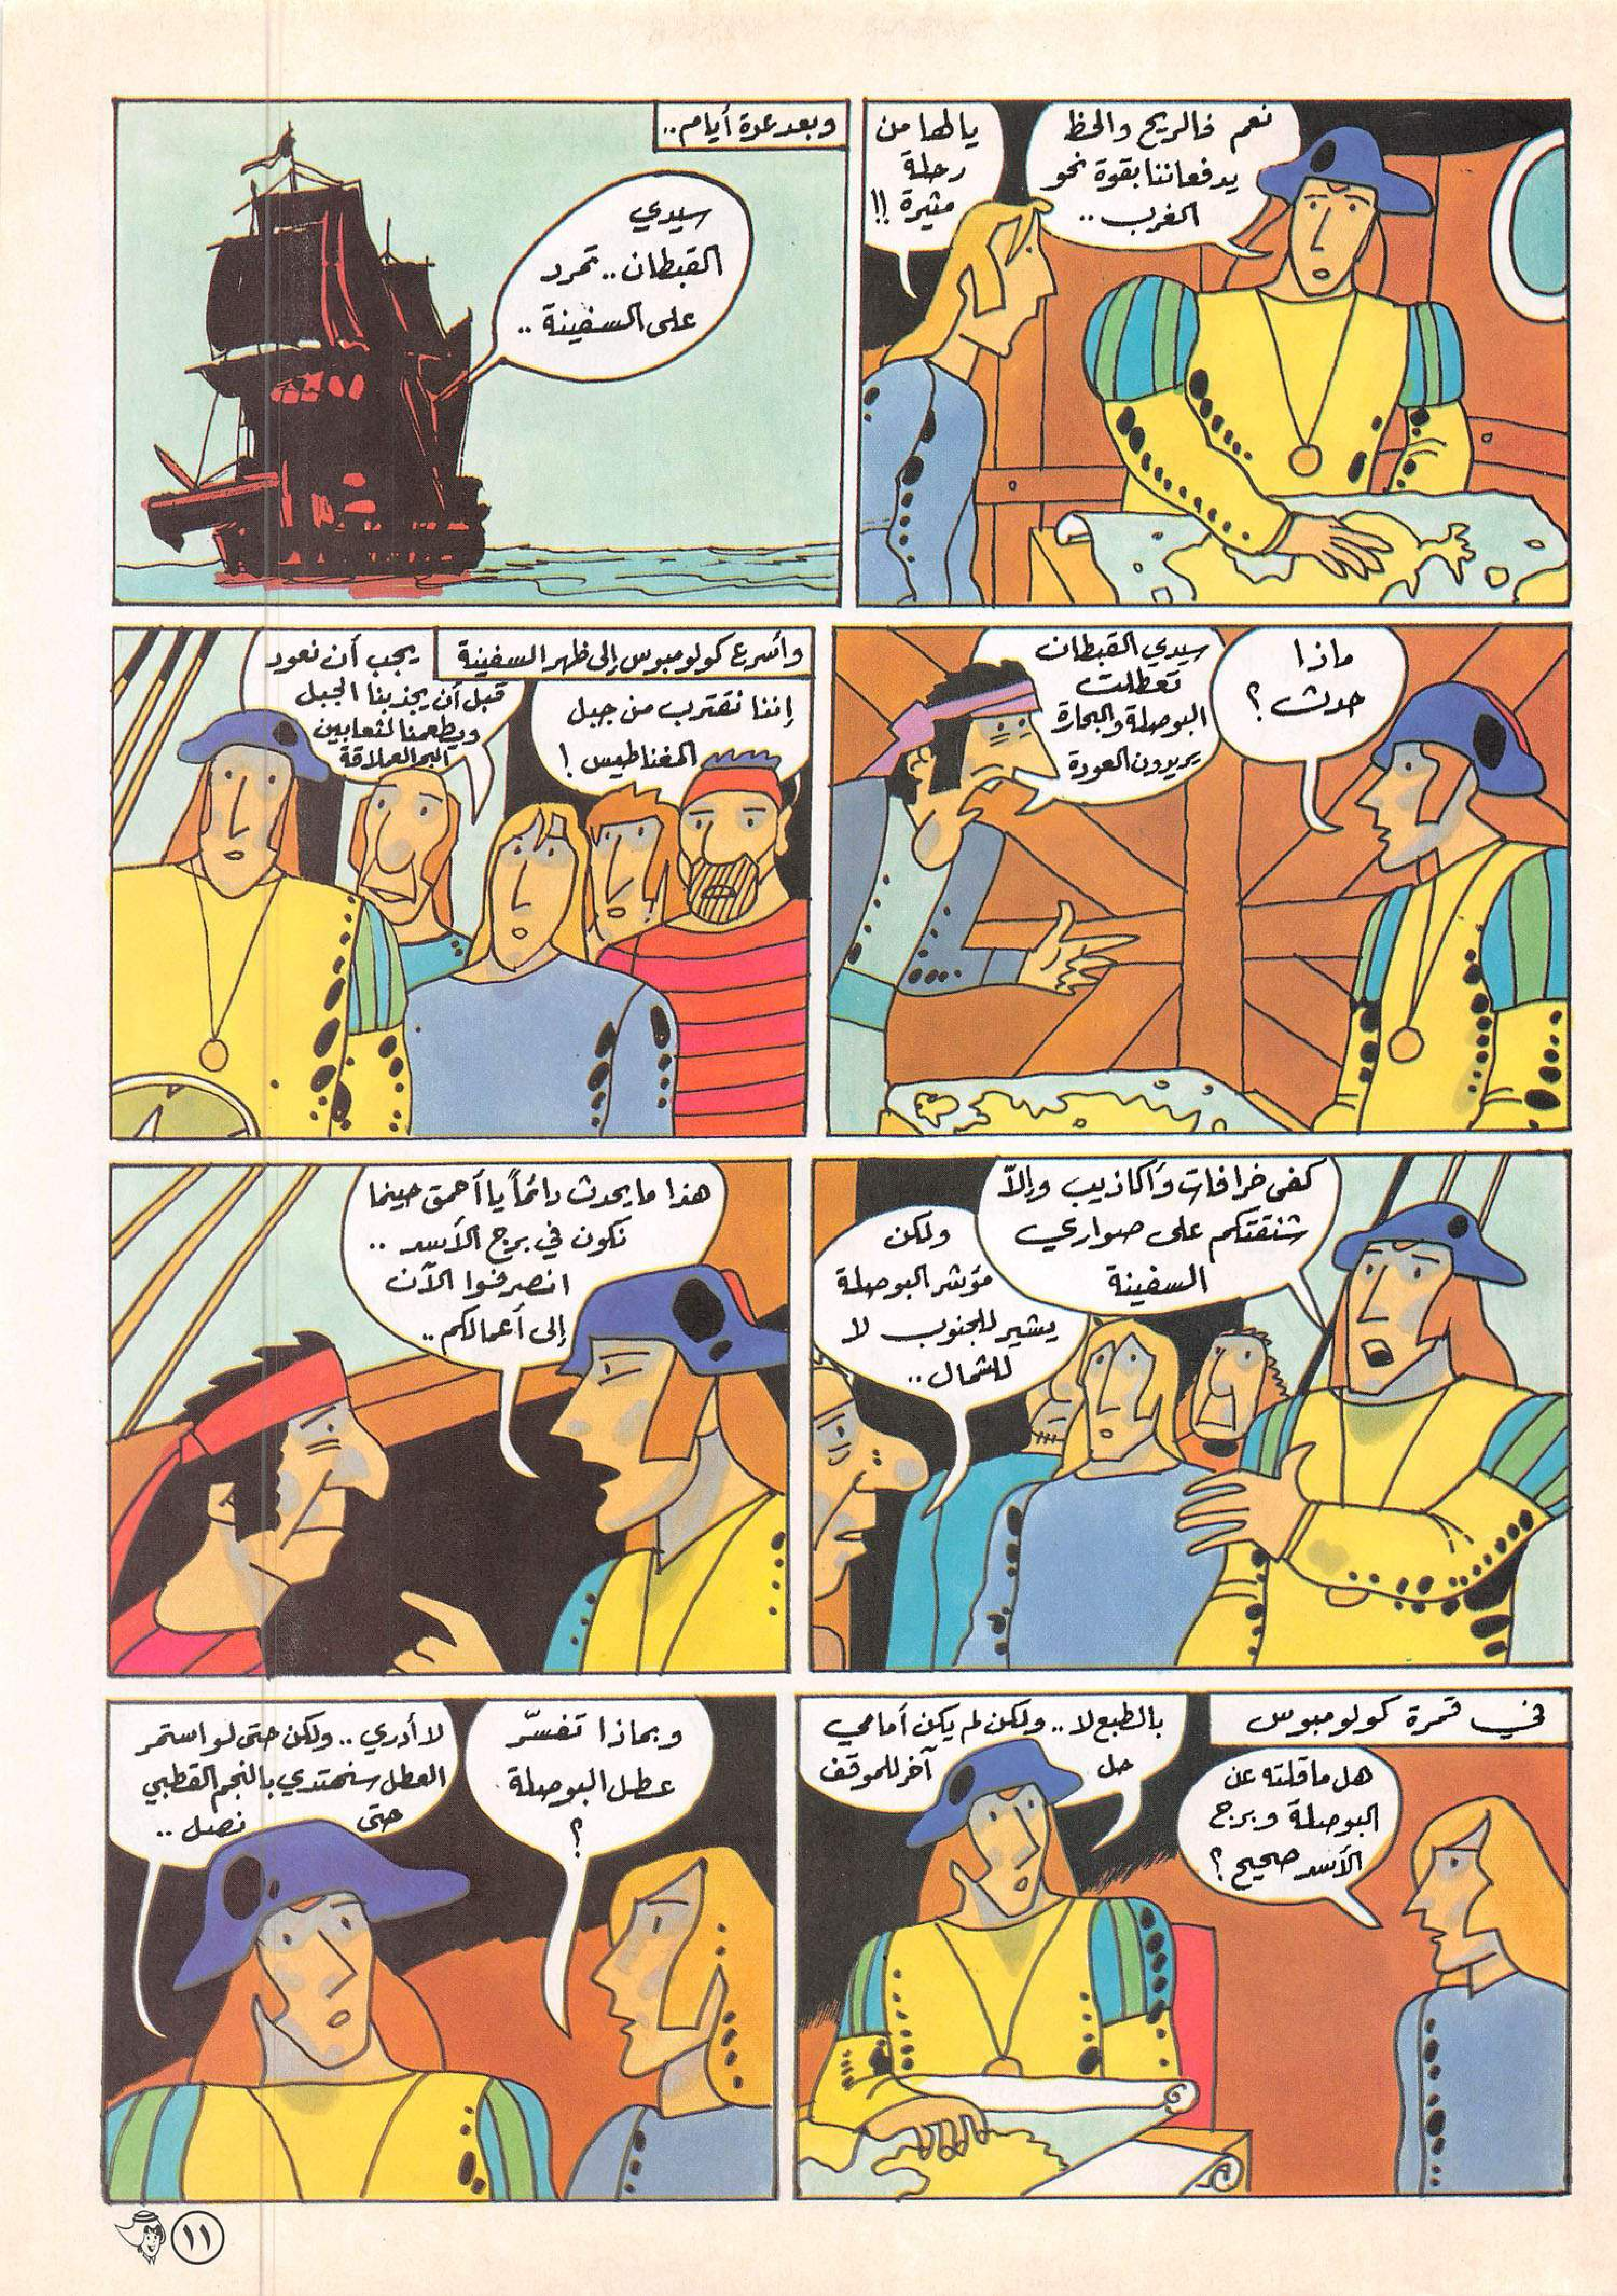 نعم فالريح والحظ
يدفعاننا بقوة نحو
الغرب ..
يالها من
رحلة
مثيرة !!
وبعد عدة أيام ..
سيدي
القبطان .. تمرد
على السفينة ..
ماذا
حدث ؟
سيدي القبطان
تعطلت
البوصلة والبحارة
يريدون العودة
وأسرع كولومبوس إلى ظهر السفينة
إننا نقترب من جبل
المغناطيس !
يجب أن نعود
قبل أن يجذبنا الجبل
ويطعمنا لثعابين
اليم العملاقة
كفى خرافات وأكاذيب وإلاّ
شنقتكم على صواري
السفينة
ولكن
مؤشر البوصلة
يشير للجنوب لا
للشمال ..
هذا ما يحدث دائماً يا أحمق حينما
نكون في برج الأسد ..
انصرفوا الآن
إلى أعمالكم ..
في قمرة كولومبوس
هل ما قلته عن
البوصلة وبرج
الأسد صحيح ؟
بالطبع لا .. ولكن لم يكن أمامي
حل
آخر للموقف
وبماذا تفسّر
عطل البوصلة
؟
لا أدري .. ولكن حتى لو استمر
العطل سنهتدي بالنجم القطبي
حتى نصل ..
١١